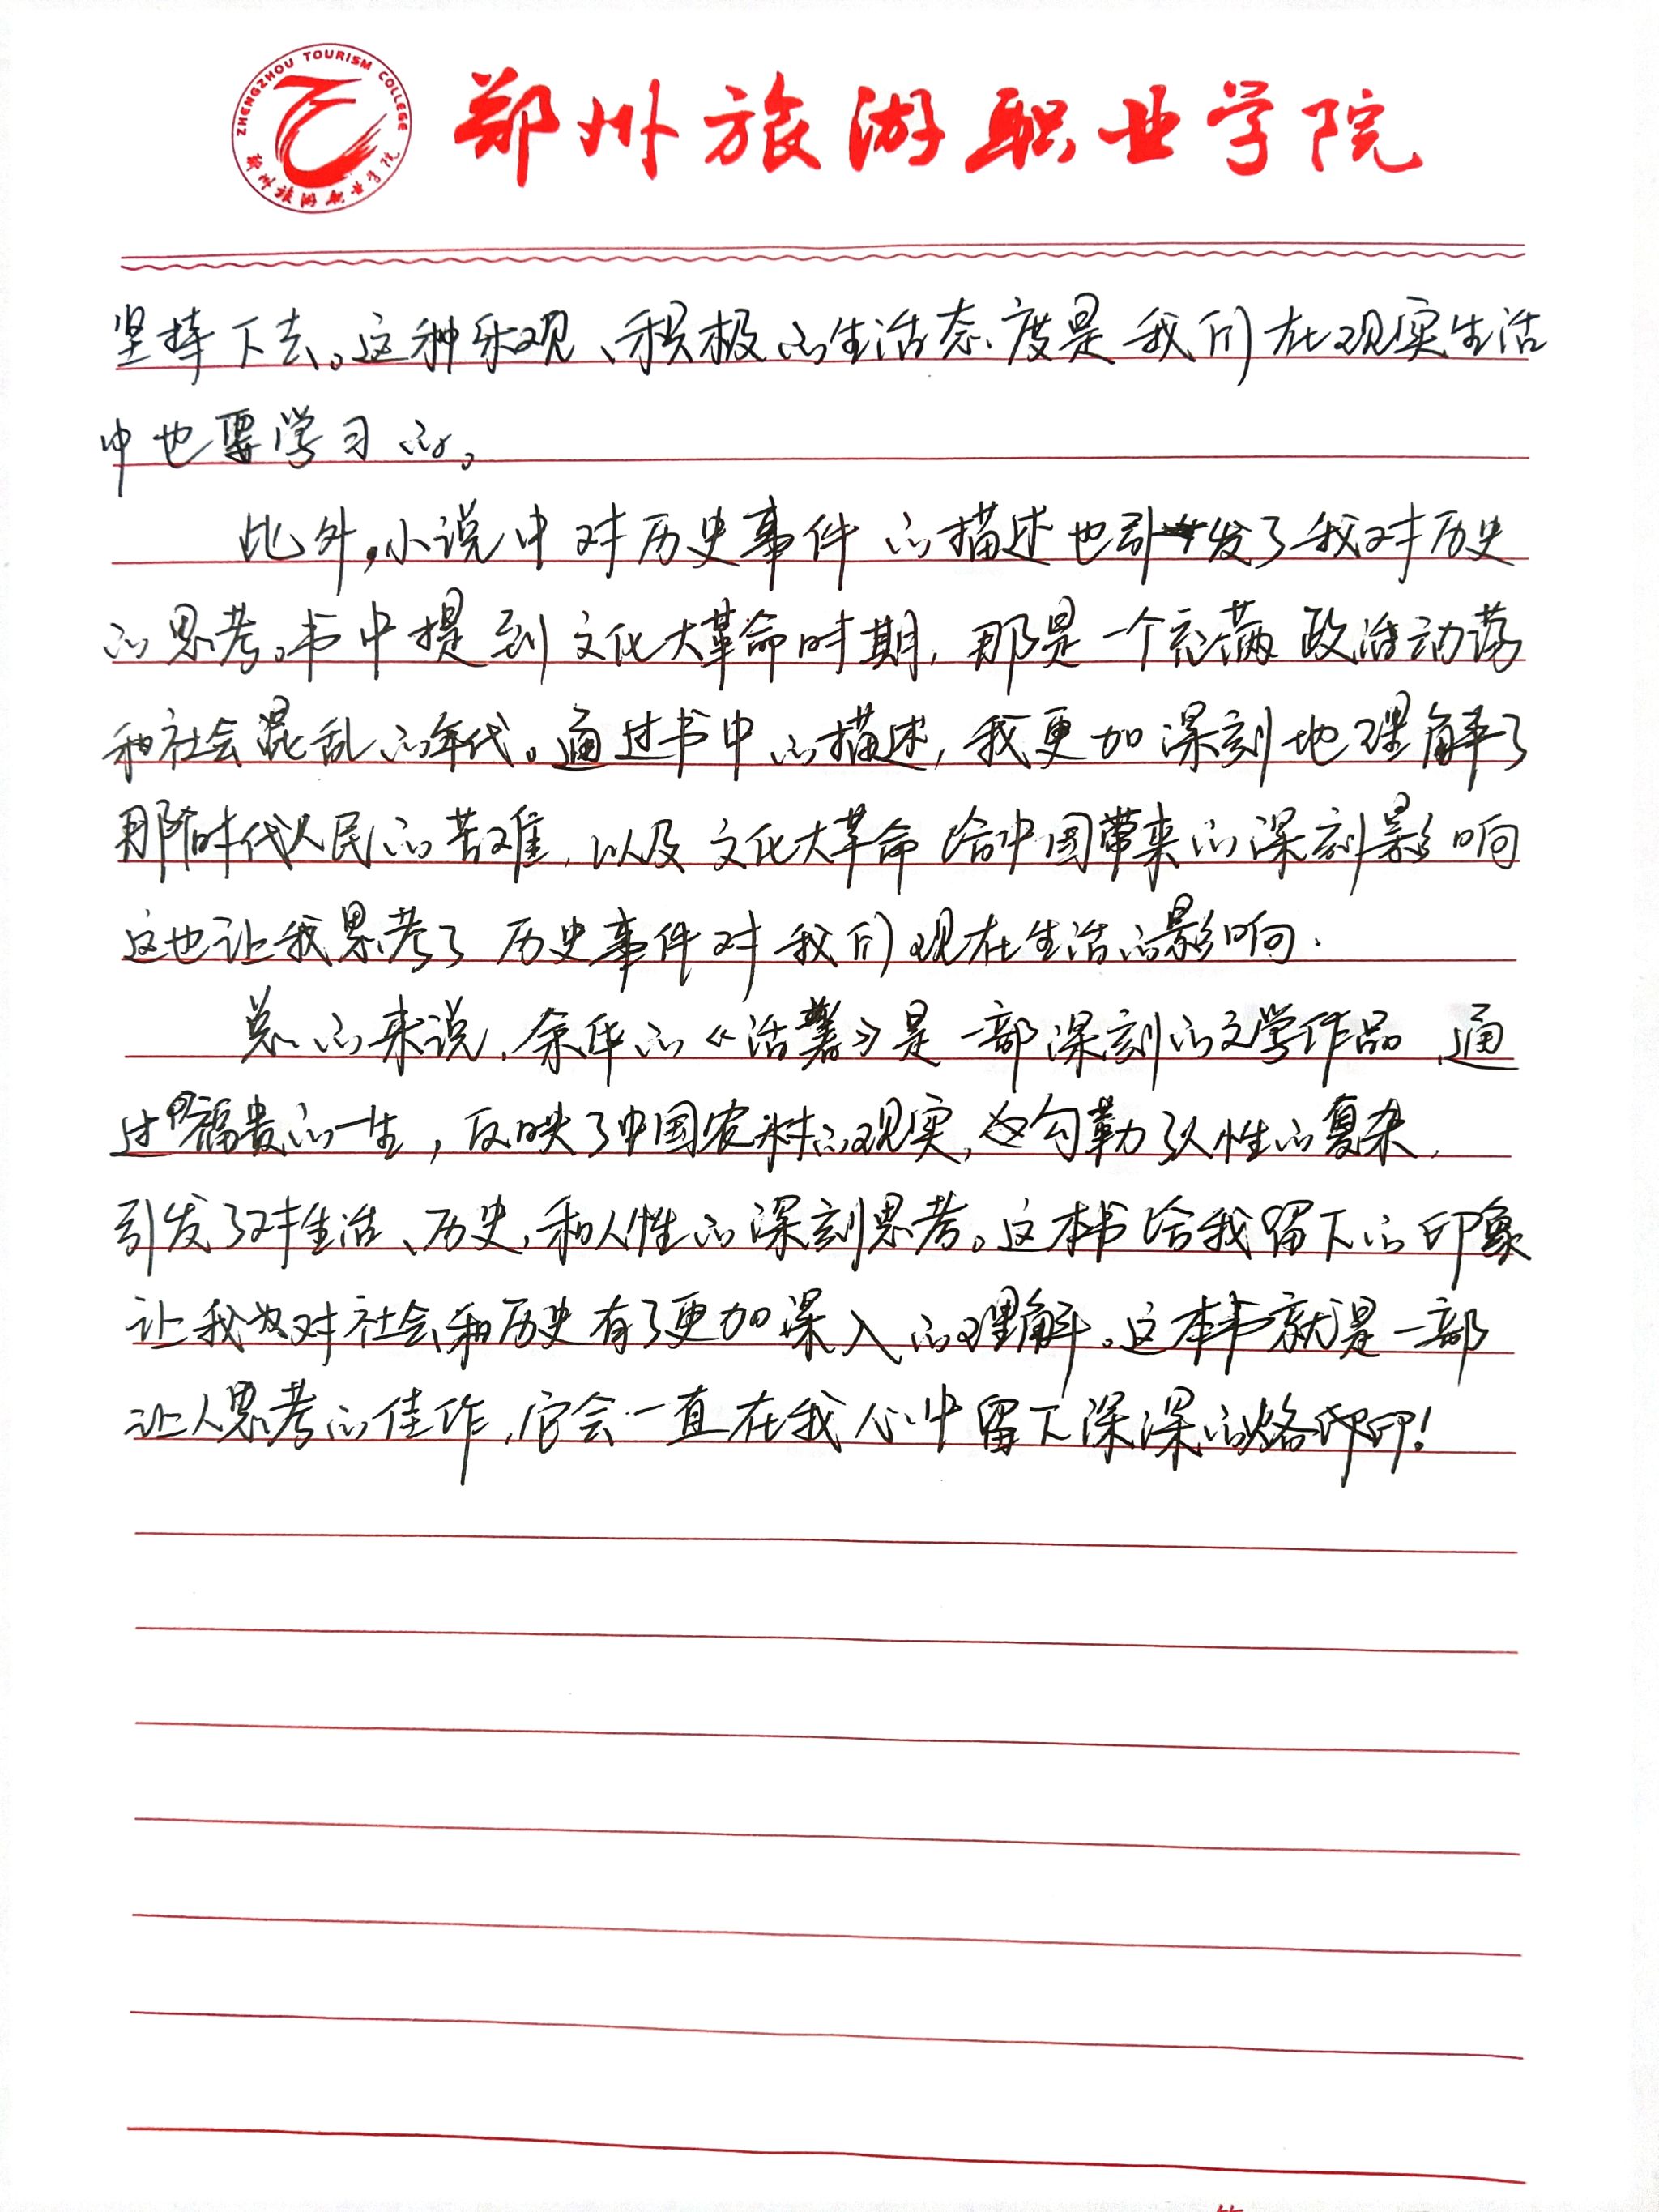 ZHENGZHOU TOURISM COLLEGE
郑州旅游职业学院
郑州旅游职业学院
坚持下去。这种乐观、积极的生活态度是我们在现实生活
中也要学习的。
此外,小说中对历史事件的描述也引发了我对历史
的思考。书中提到文化大革命时期,那是一个充满政治动荡
和社会混乱的年代。通过书中的描述,我更加深刻地理解了
那个时代人民的苦难,以及文化大革命给中国带来的深刻影响
这也让我思考了历史事件对我们现在生活的影响.
总的来说,余华的《活着》是一部深刻的文学作品,通
过福贵的一生,反映了中国农村的现实,勾勒了人性的复杂,
引发了对生活、历史,和人性的深刻思考。这本书给我留下的印象
让我对社会和历史有了更加深入的理解。这本书就是一部
让人思考的佳作,它会一直在我心中留下深深的烙印!